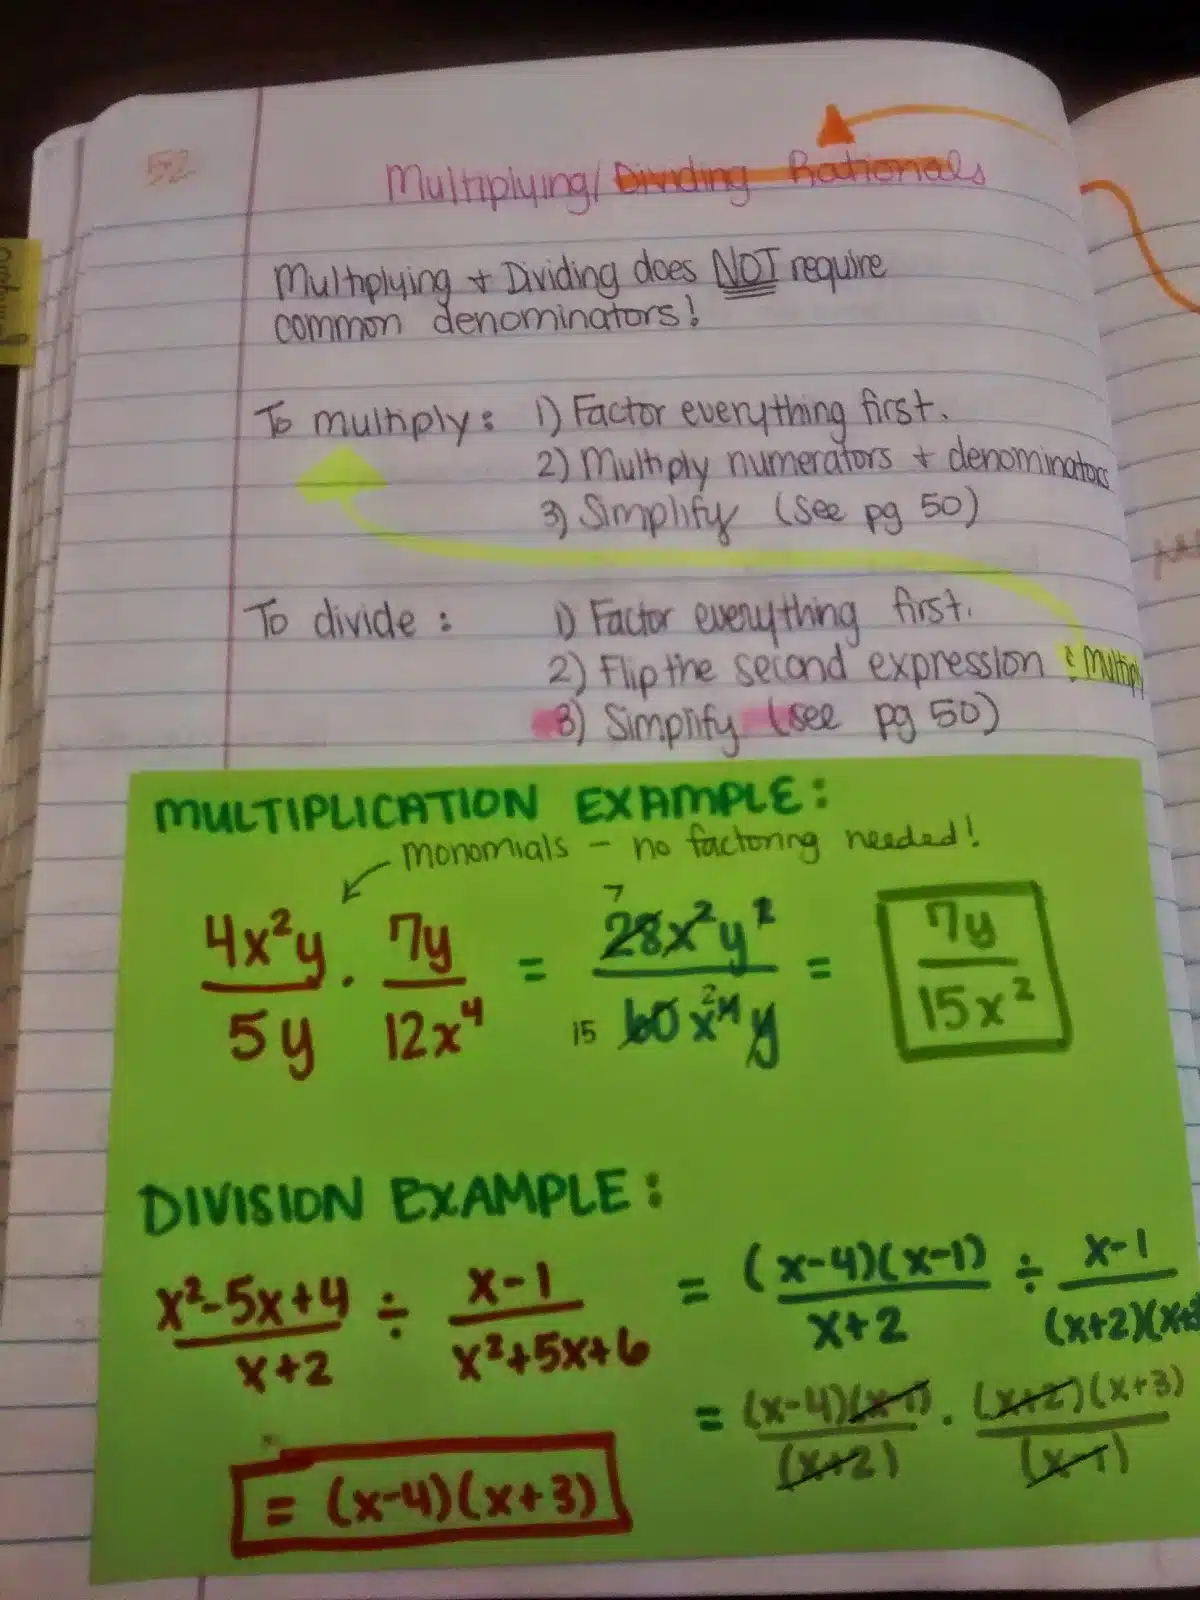 52
Multiplying/Dividing Rationals
Multiplying + Dividing does NOT require
common denominators!
To multiply: 1) Factor everything first.
2) Multiply numerators + denominators
3) Simplify (see pg 50)
To divide: 1) Factor everything first.
2) Flip the second expression & multiply
3) Simplify (see pg 50)
MULTIPLICATION EXAMPLE:
monomials - no factoring needed!
4x²y/5y · 7y/12x⁴ = 7 28x²y²/15 60x² ⁴y = 7y/15x²
DIVISION EXAMPLE:
x²-5x+4/x+2 ÷ x-1/x²+5x+6 = (x-4)(x-1)/x+2 ÷ x-1/(x+2)(x+3
= (x-4)(x-1)/(x+2) · (x+2)(x+3)/(x-1)
= (x-4)(x+3)